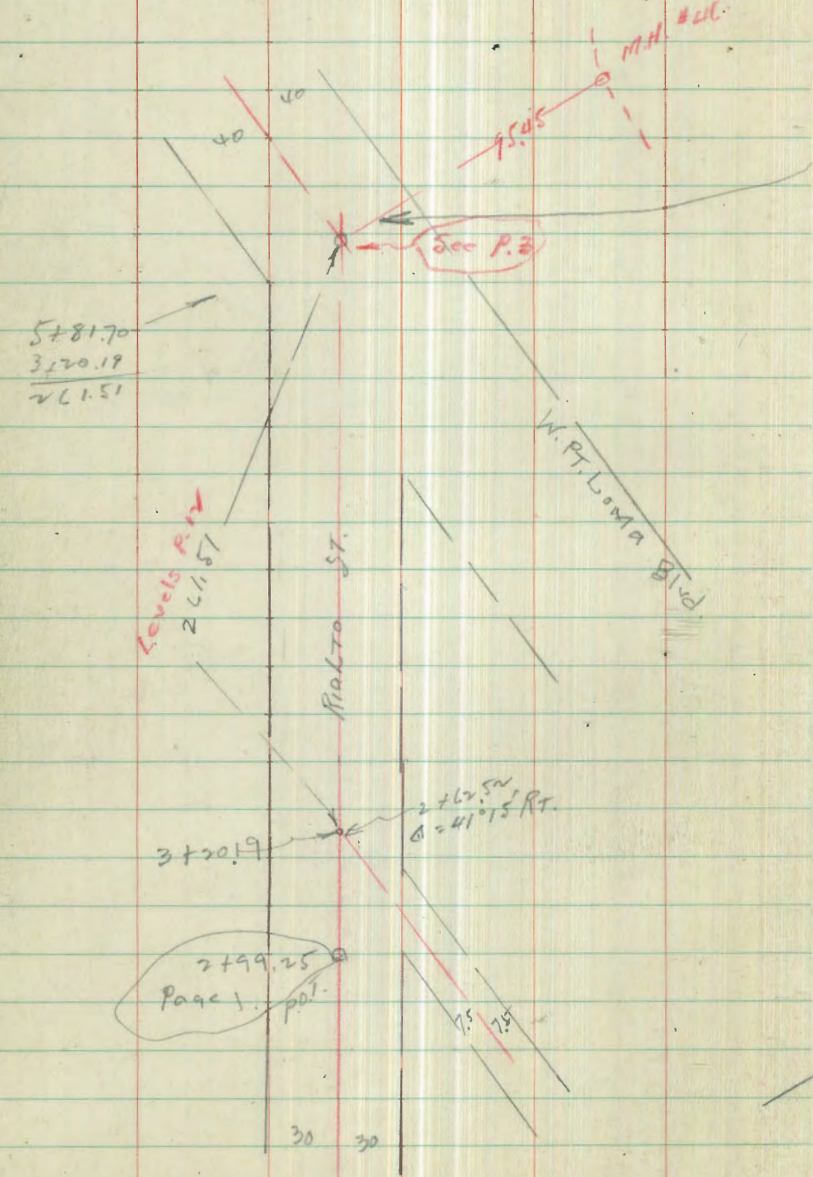 M.H. #
40
40
95.45
See P.3
5+81.70
3+20.19
261.51
W. PT. Loma Blvd.
Levels P.12
261.51
Rialto ST.
2+62.52
Δ=41°15' RT.
3+20.19
2+99.25
Page 1. P.O.T.
7.5 7.5
30 30